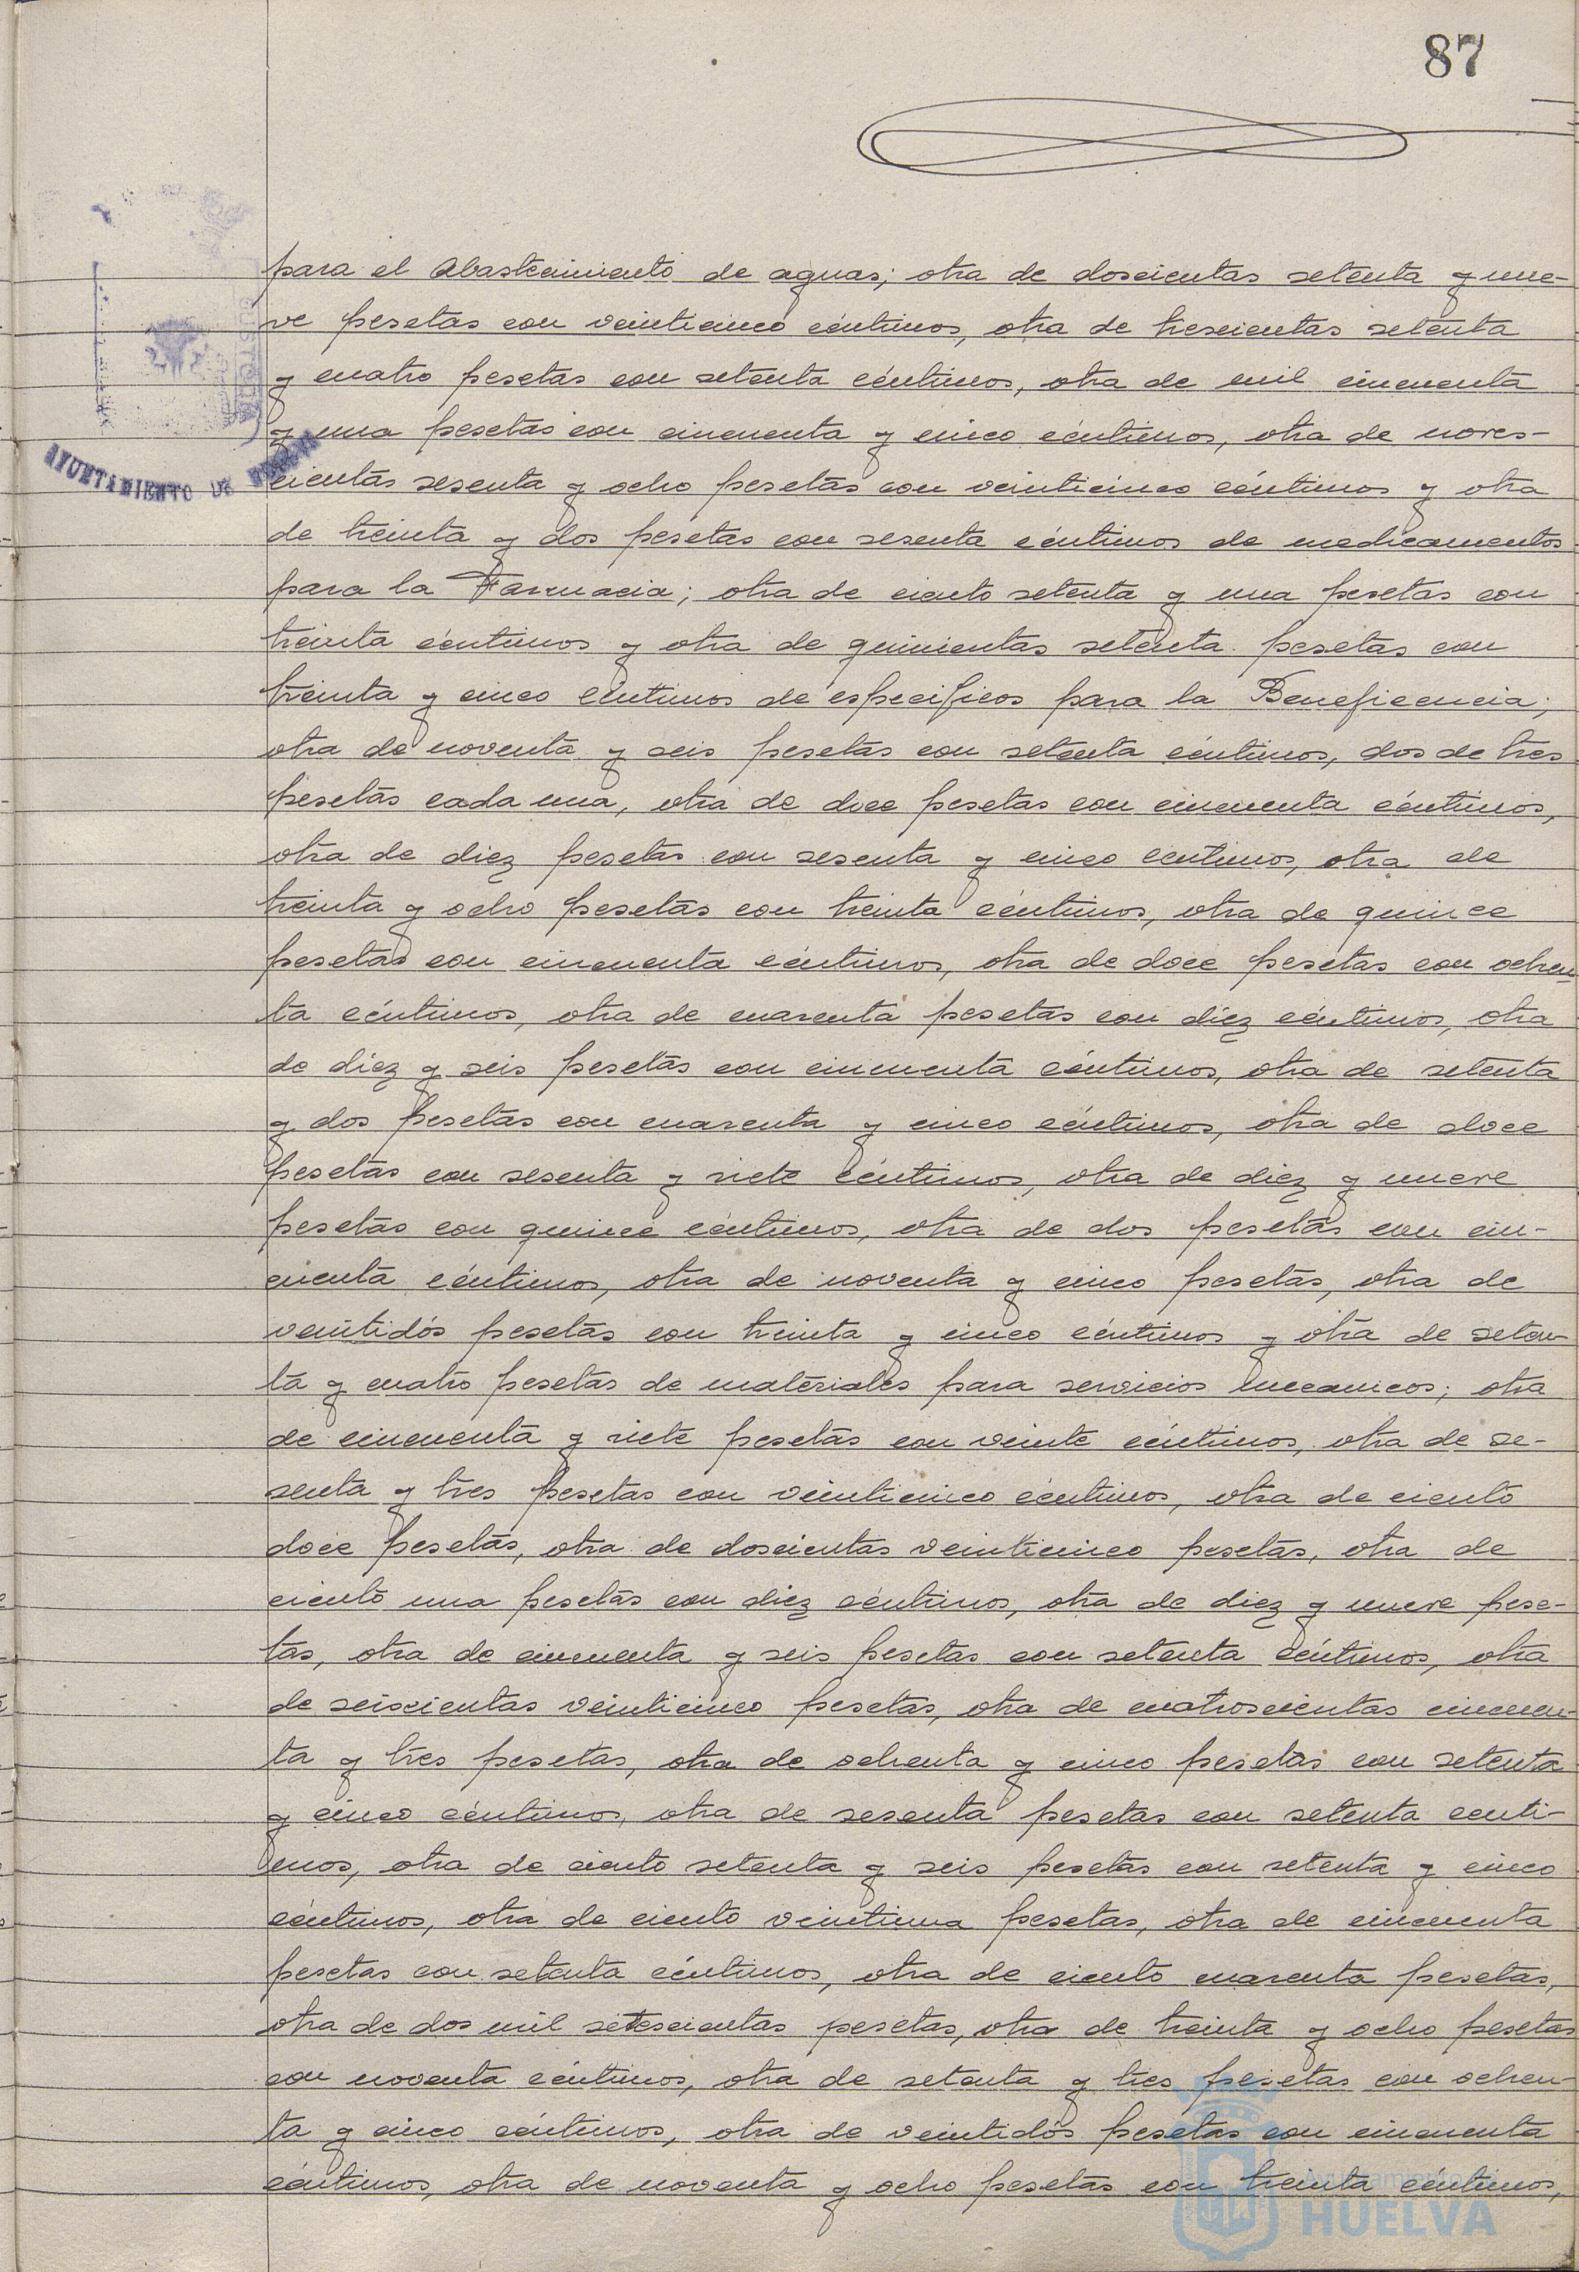 87
para el Abastecimiento de aguas; otra de doscientas setenta y nue-
ve pesetas con veinticinco céntimos, otra de trescientas setenta
y cuatro pesetas con setenta céntimos, otra de mil cincuenta
y una pesetas con cincuenta y cinco céntimos, otra de noves-
cientas sesenta y ocho pesetas con veinticinco céntimos y otra
de treinta y dos pesetas con sesenta céntimos de medicamentos
para la Farmacia; otra de ciento setenta y una pesetas con
treinta céntimos y otra de quinientas setenta pesetas con
treinta y cinco céntimos de especificos para la Beneficencia;
otra de noventa y seis pesetas con setenta céntimos, dos de tres
pesetas cada una, otra de doce pesetas con cincuenta céntimos,
otra de diez pesetas con sesenta y cinco centimos, otra de
treinta y ocho pesetas con treinta céntimos, otra de quince
pesetas con cincuenta céntimos, otra de doce pesetas con ochen-
ta céntimos, otra de cuarenta pesetas con diez céntimos, otra
de diez y seis pesetas con cincuenta céntimos, otra de setenta
y dos pesetas con cuarenta y cinco céntimos, otra de doce
pesetas con sesenta y siete céntimos, otra de diez y nueve
pesetas con quince céntimos, otra de dos pesetas con cin-
cuenta céntimos, otra de noventa y cinco pesetas, otra de
veintidós pesetas con treinta y cinco céntimos y otra de seten-
ta y cuatro pesetas de materiales para servicios mecanicos; otra
de cincuenta y siete pesetas con veinte céntimos, otra de se-
senta y tres pesetas con veinticinco céntimos, otra de ciento
doce pesetas, otra de doscientas veinticinco pesetas, otra de
ciento una pesetas con diez céntimos, otra de diez y nueve pese-
tas, otra de cincuenta y seis pesetas con setenta céntimos, otra
de seiscientas veinticinco pesetas, otra de cuatroscientas cincuen-
ta y tres pesetas, otra de ochenta y cinco pesetas con setenta
y cinco céntimos, otra de sesenta pesetas con setenta centi-
mos, otra de ciento setenta y seis pesetas con setenta y cinco
céntimos, otra de ciento veintiuna pesetas, otra de cincuenta
pesetas con setenta céntimos, otra de ciento cuarenta pesetas,
otra de dos mil setescientas pesetas, otra de treinta y ocho pesetas
con noventa céntimos, otra de setenta y tres pesetas con ochen-
ta y cinco céntimos, otra de veintidós pesetas con cincuenta
céntimos, otra de noventa y ocho pesetas con treinta céntimos,
AYUNTAMIENTO DE HUELVA
Ayuntamiento de
HUELVA